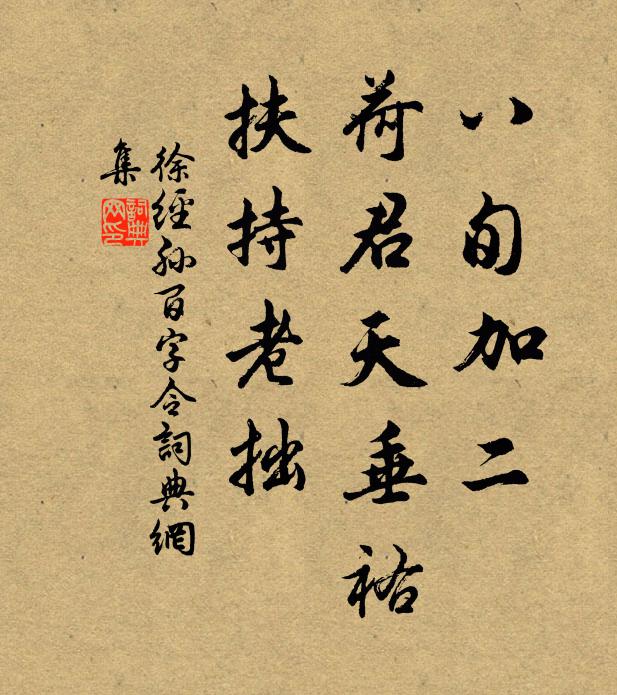 八旬加二
荷君天垂祐
扶持老拙
徐經孫百字令詞典網
集
詞典
网印